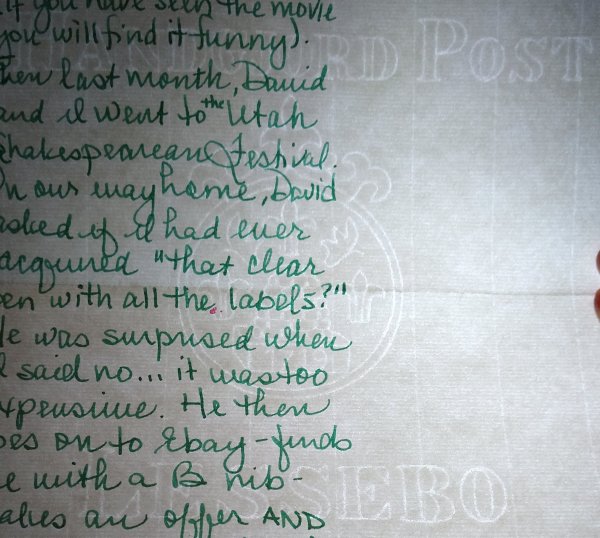 if you have seen the movie
you will find it funny).
hen last month, David
and I went to the Utah
Shakespearean Festival.
n our way home, David
asked if I had ever
acquired "that clear
en with all the labels?"
e was surprised when
I said no... it was too
xpensive. He then
oes on to Ebay - finds
e with a B nib -
akes an offer AND
POST
LESSEBO